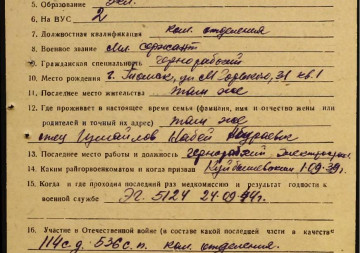 5. Образование
6. На ВУС 2
7. Должностная квалификация ком. отделения
8. Военное звание Мл. сержант
9. Гражданская специальность чернорабочий
10. Место рождения г. Томск, ул М. Горького, 31 кв. 1
11. Последнее место жительства там же
12. Где проживает в настоящее время семья (фамилия, имя и отчество жены или
родителей и точный их адрес) там же
отец
13. Последнее место работы и должность
14. Каким райгорвоенкоматом и когда призван Куйбышевским 1-09-39г.
15. Когда и где проходил последний раз медкомиссию и результат годности к
военной службе ЭГ. 5124 24-09-44г.
16. Участие в Отечественной войне (в составе какой последней части в качестве
114 с.д. 536 с.п. ком. отделения.